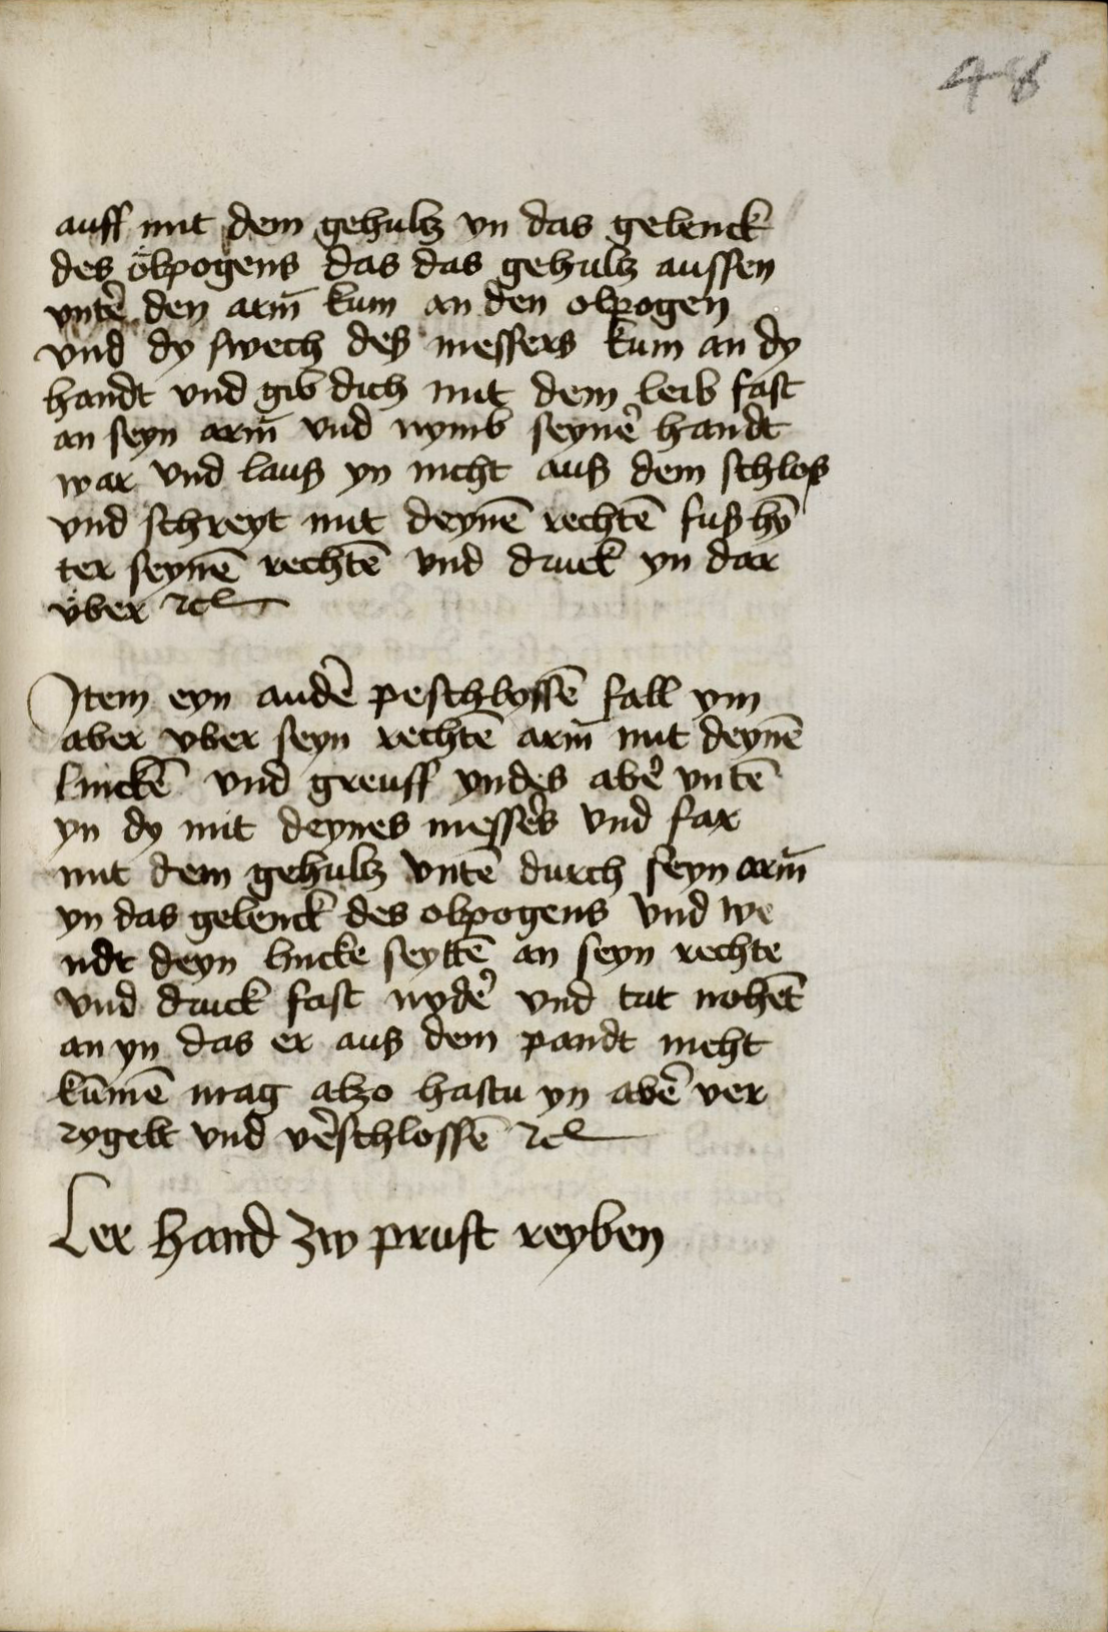 48
auff mit dem gehultz yn das gelenck
des ölpogens das das gehultz aussen
vntē den arm̄ kum an den olpogen
vnd dy swech deß messers kum an dy
handt vnd gib dich mit dem leib fast
an seyn arm̄ vnd nymb seynē handt
war vnd lauß yn nicht auß dem schloß
vnd schreyt mit deynē rechtē fuß hȳ
ter seynē rechtē vnd druck yn dar
vber ⁊cꝭ
Item eyn andē peschlossē fall vm
aber vber seyn rechtē arm̄ mit deynē
linckē vnd greuff yndes abē vntē
yn dy mit deynes messērs vnd far
mit dem gehultz vntē durch seyn arm̄
yn das gelenck des olpogens vnd we
ndt deyn lincke seyttē an seyn rechte
vnd druck fast nydē vnd trit nohēt
an yn das er auß dem pandt nicht
kūmē mag alzo hastu yn abē ver
rygelt vnd vēschlossē ⁊cꝭ
Ler hand zw prust reyben